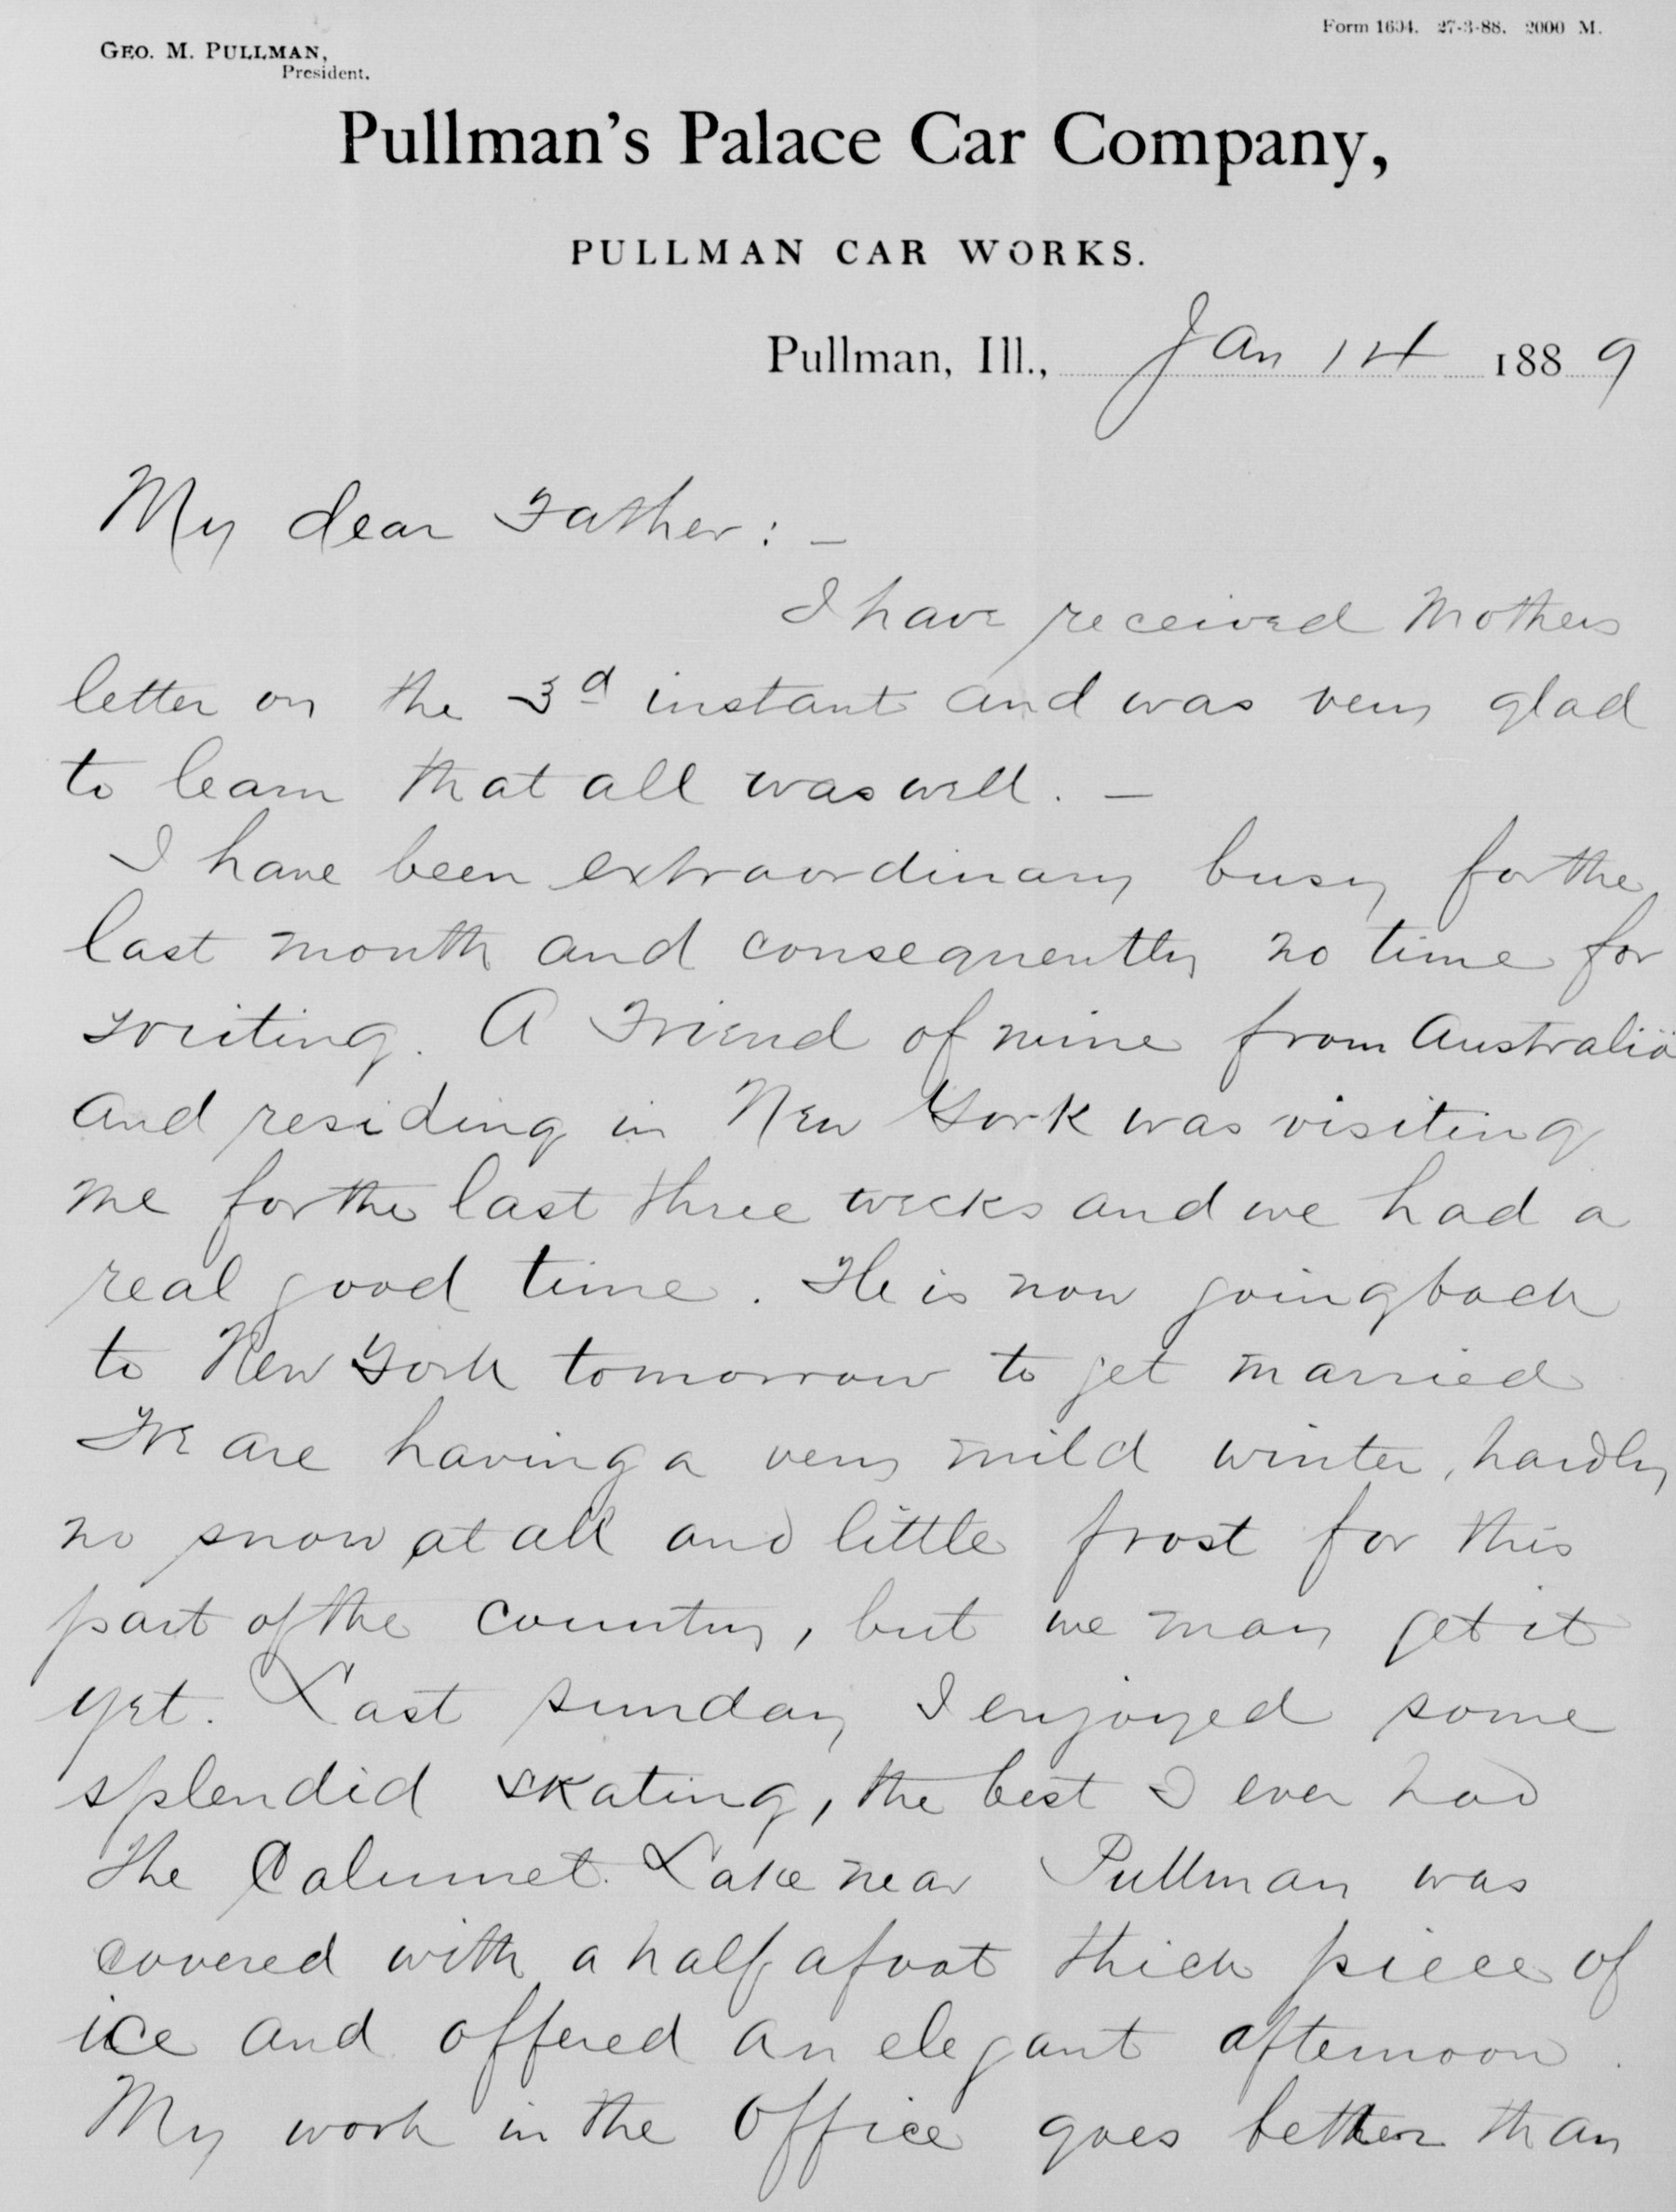 Form 1604. 27-3-88. 2000 M.
GEO. M. PULLMAN,
President.
Pullman's Palace Car Company,
PULLMAN CAR WORKS.
Pullman, Ill., Jan 14 1889
My dear Father: —
I have received Mothers
letter on the 3d instant and was very glad
to learn that all was well. —
I have been extraordinary busy for the
last month and consequently no time for
writing. A Friend of mine from Australia
and residing in New York was visiting
me for the last three weeks and we had a
real good time. He is now going back
to New York tomorrow to get married
We are having a very mild winter, hardly
no snow at all and little frost for this
part of the country, but we may get it
yet. Last sunday I enjoyed some
splendid skating, the best I ever had
the Calumet Lake near Pullman was
covered with a half a foot thick piece of
ice and offered an elegant afternoon.
My work in the Office goes better than